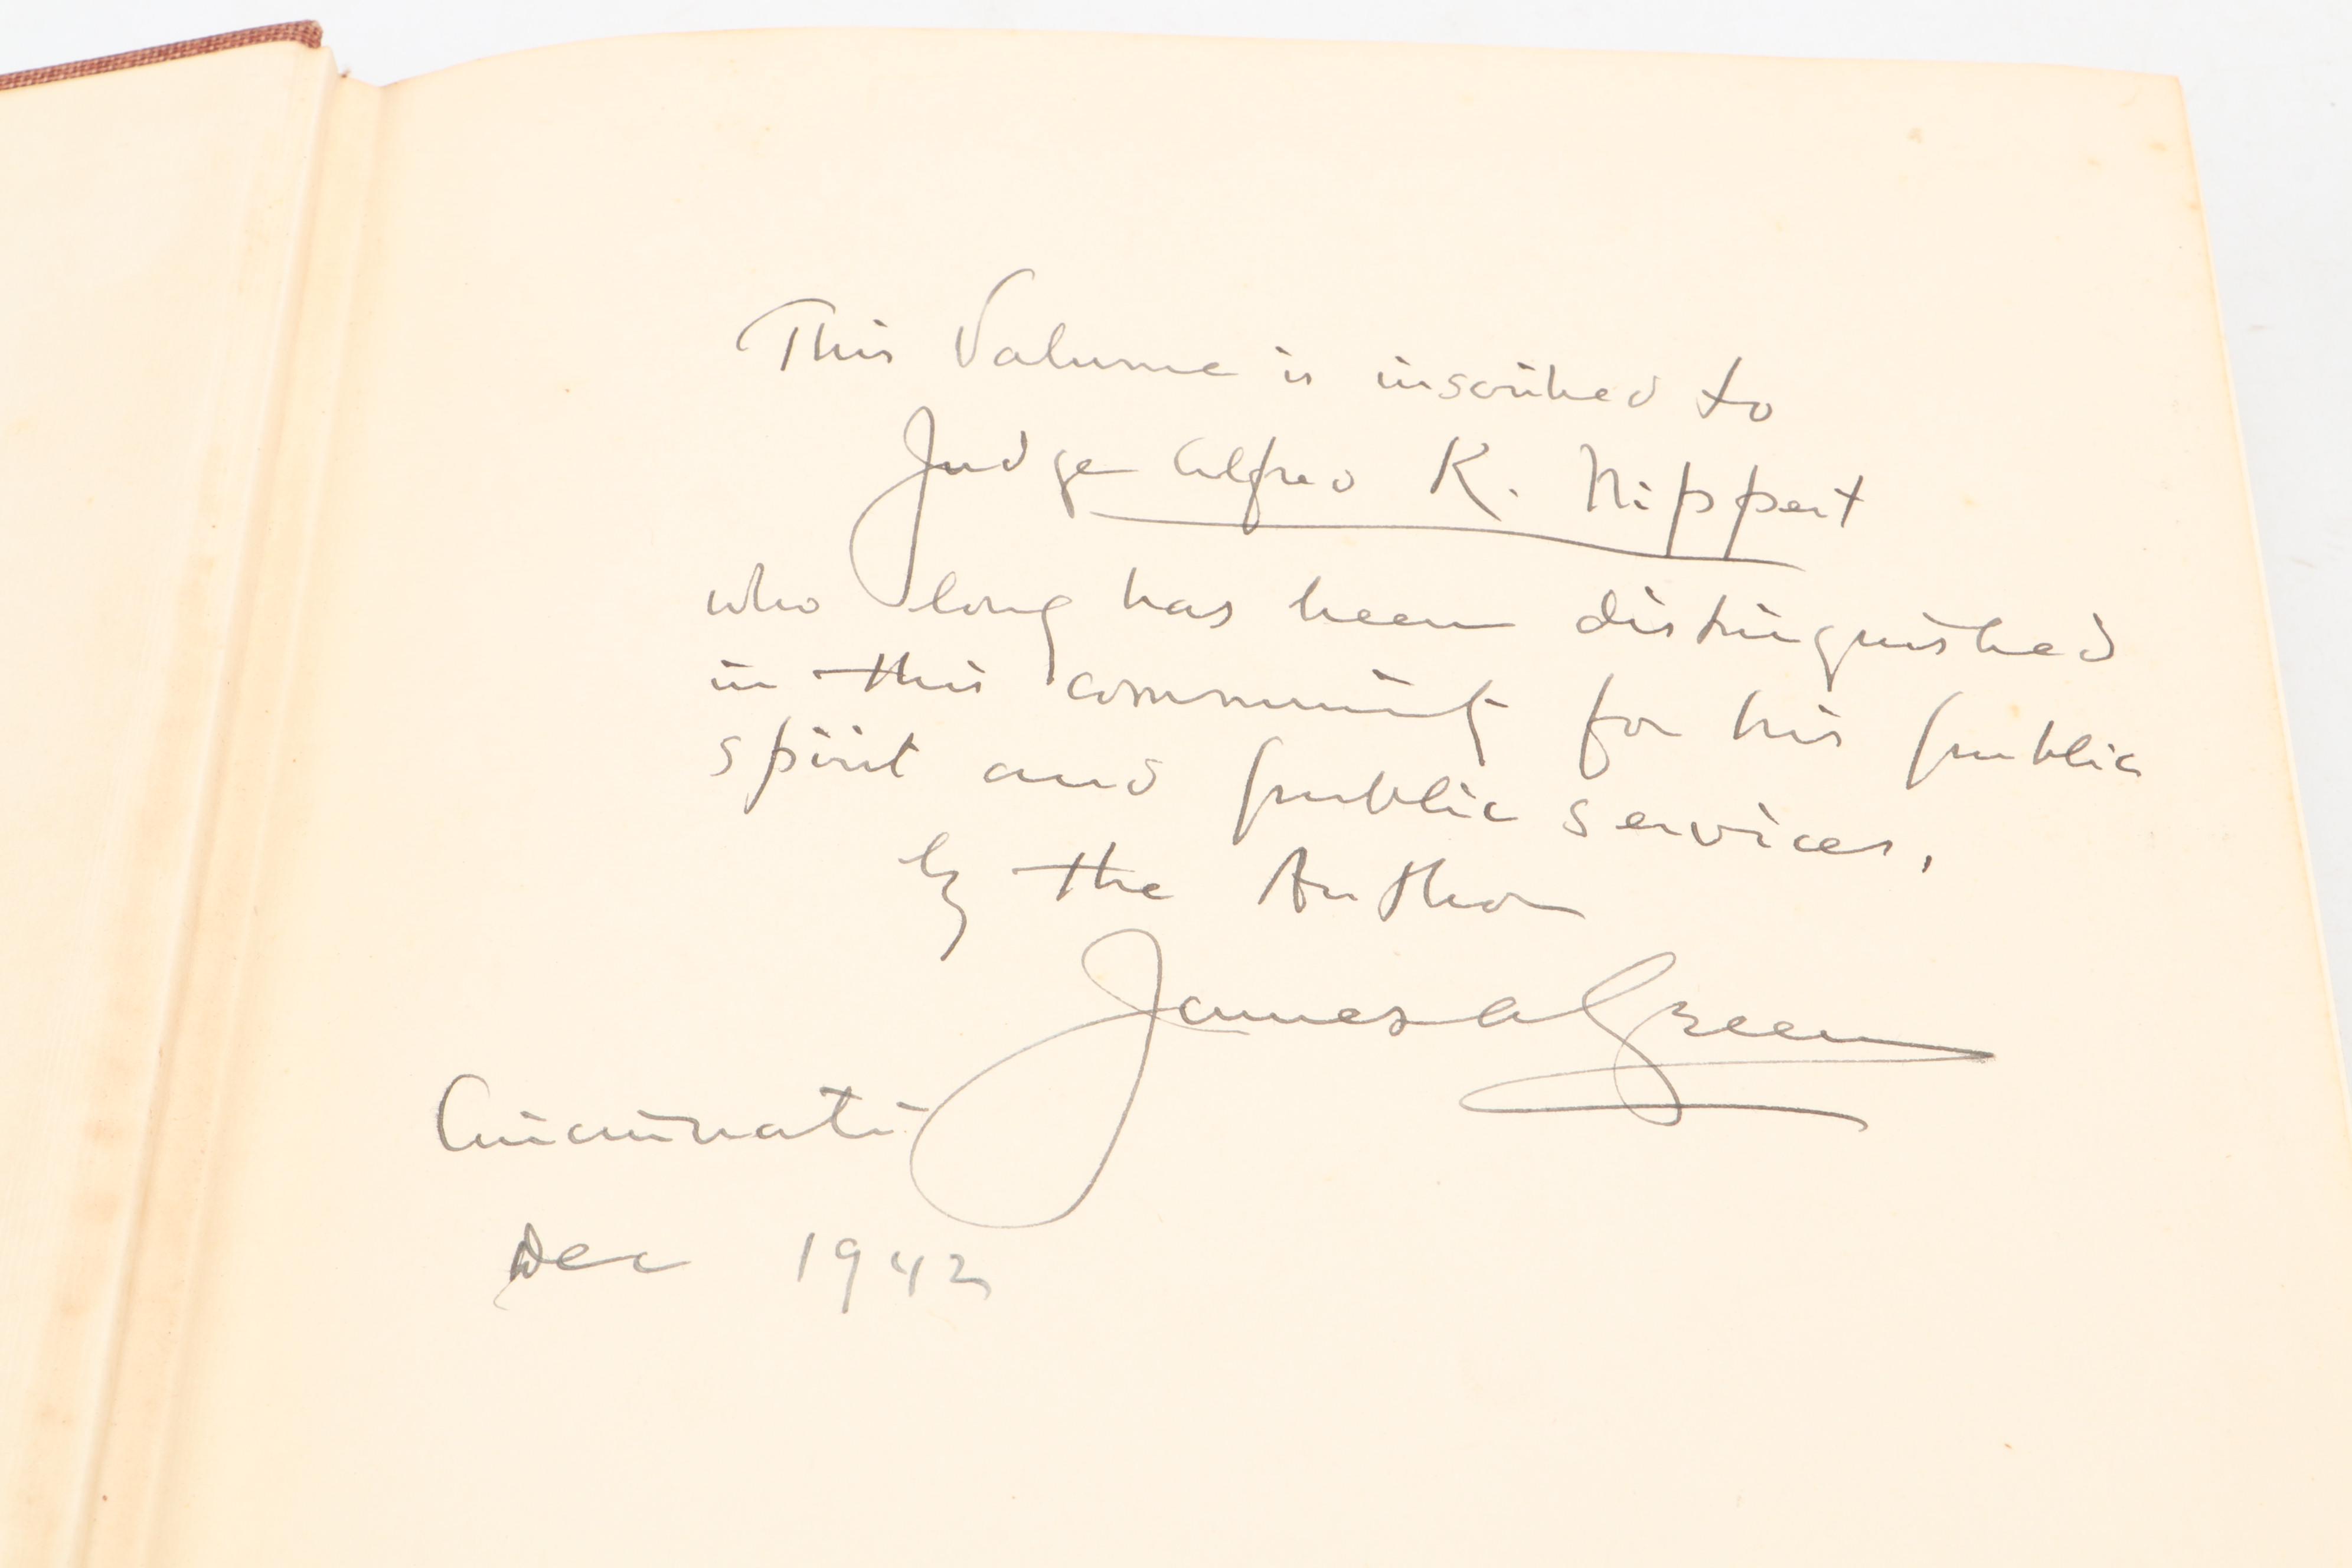 This Volume is inscribed to
Judge Alfred K. Nippert
who long has been distinguished
in this community for his public
spirit and public services,
by the Author
James A Green
Cincinnati
Dec 1942